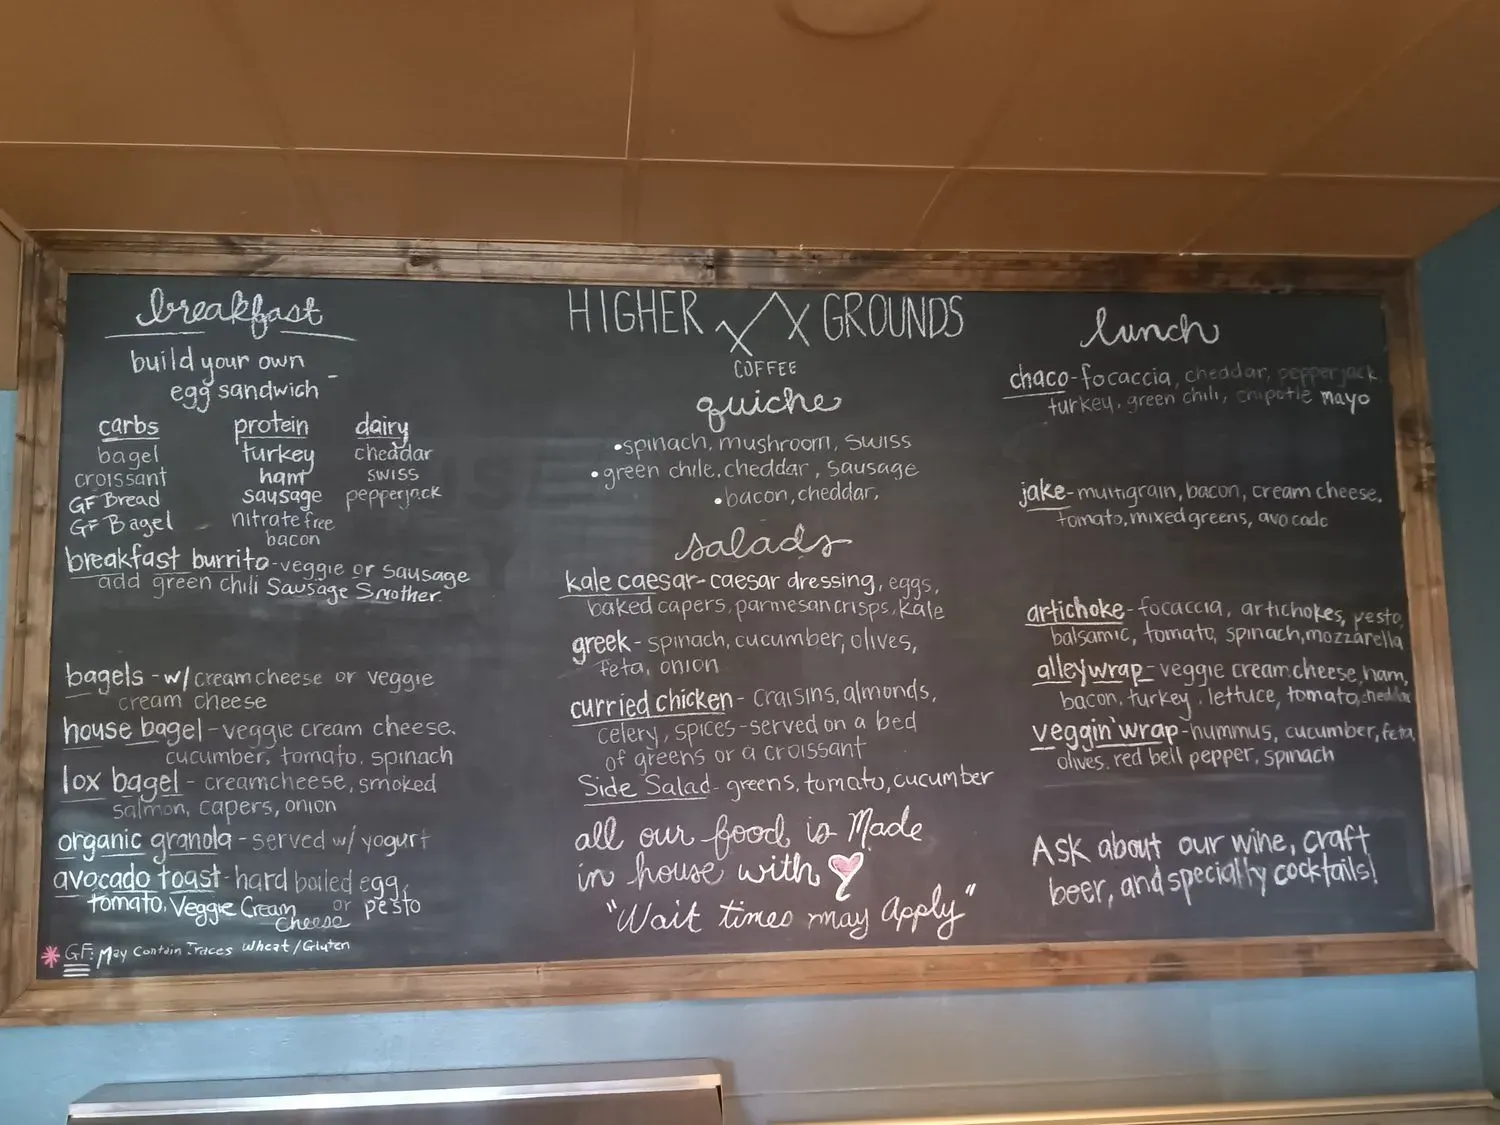 breakfast
build your own
egg sandwich -
carbs protein dairy
bagel turkey cheddar
croissant ham swiss
GF Bread sausage pepperjack
GF Bagel - nitrate free
bacon
breakfast burrito - veggie or sausage
add green chili Sausage Smother.
bagels - w/ creamcheese or veggie
cream cheese
house bagel - veggie cream cheese.
cucumber, tomato, spinach
lox bagel - creamcheese, smoked
salmon, capers, onion
organic granola - served w/ yogurt
avocado toast - hard boiled egg,
tomato, Veggie Cream or pesto
Cheese
* GF: May Contain Traces Wheat/Gluten
HIGHER GROUNDS
COFFEE
quiche
• spinach, mushroom, swiss
• green chile, cheddar, sausage
• bacon, cheddar,
salads
kale caesar - caesar dressing, eggs,
baked capers, parmesan crisps, kale
greek - spinach, cucumber, olives,
feta, onion
curried chicken - craisins, almonds,
celery, spices - served on a bed
of greens or a croissant
Side Salad - greens, tomato, cucumber
all our food is Made
in house with
"Wait times may Apply"
lunch
chaco - focaccia, cheddar, pepperjack,
turkey, green chili, chipotle mayo
jake - multigrain, bacon, cream cheese,
tomato, mixed greens, avocado
artichoke - focaccia, artichokes, pesto,
balsamic, tomato, spinach, mozzarella
alleywrap - veggie creamcheese, ham,
bacon, turkey, lettuce, tomato, cheddar
veggin' wrap - hummus, cucumber, feta,
olives, red bell pepper, spinach
Ask about our wine, craft
beer, and specialty cocktails!